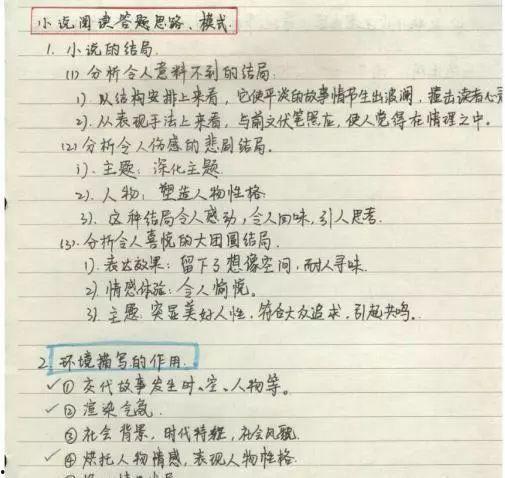 小说阅读答题思路、模式.
1. 小说的结局.
(1) 分析令人意料不到的结局:
1). 以结构安排上来看, 它使平淡的故事情节生出波澜, 撞击读者心灵
2). 从表现手法上来看, 与前文伏笔照应, 使人觉得在情理之中.
(2) 分析令人伤感的悲剧结局.
1). 主题: 深化主题.
2). 人物: 塑造人物性格.
3). 这种结局令人感动, 令人回味, 引人思考.
(3). 分析令人喜悦的大团圆结局.
1). 表达效果: 留下了想像空间, 耐人寻味.
2). 情感体验: 令人愉悦.
3). 主题: 突显美好人性, 符合大众追求, 引起共鸣.
2. 环境描写的作用.
✓① 交代故事发生时、空、人物等。
✓② 渲染气氛.
③ 社会背景, 时代特征, 社会风貌.
✓④ 烘托人物情感, 表现人物性格.